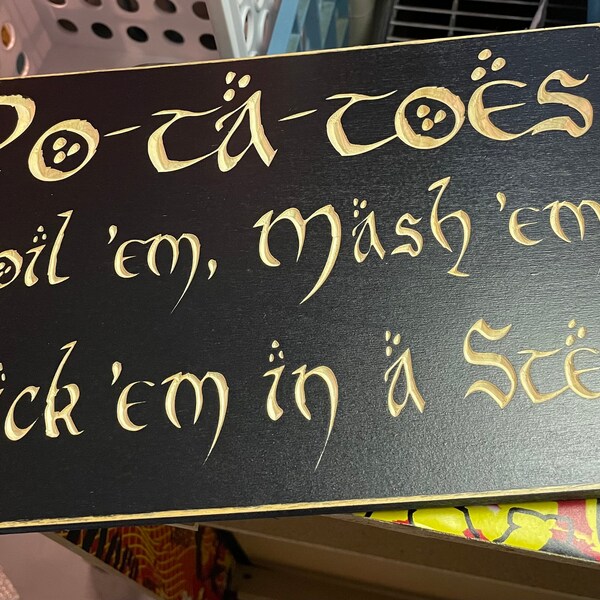 Po-ta-toes
oil 'em, Mash 'em
ick 'em in a Ste